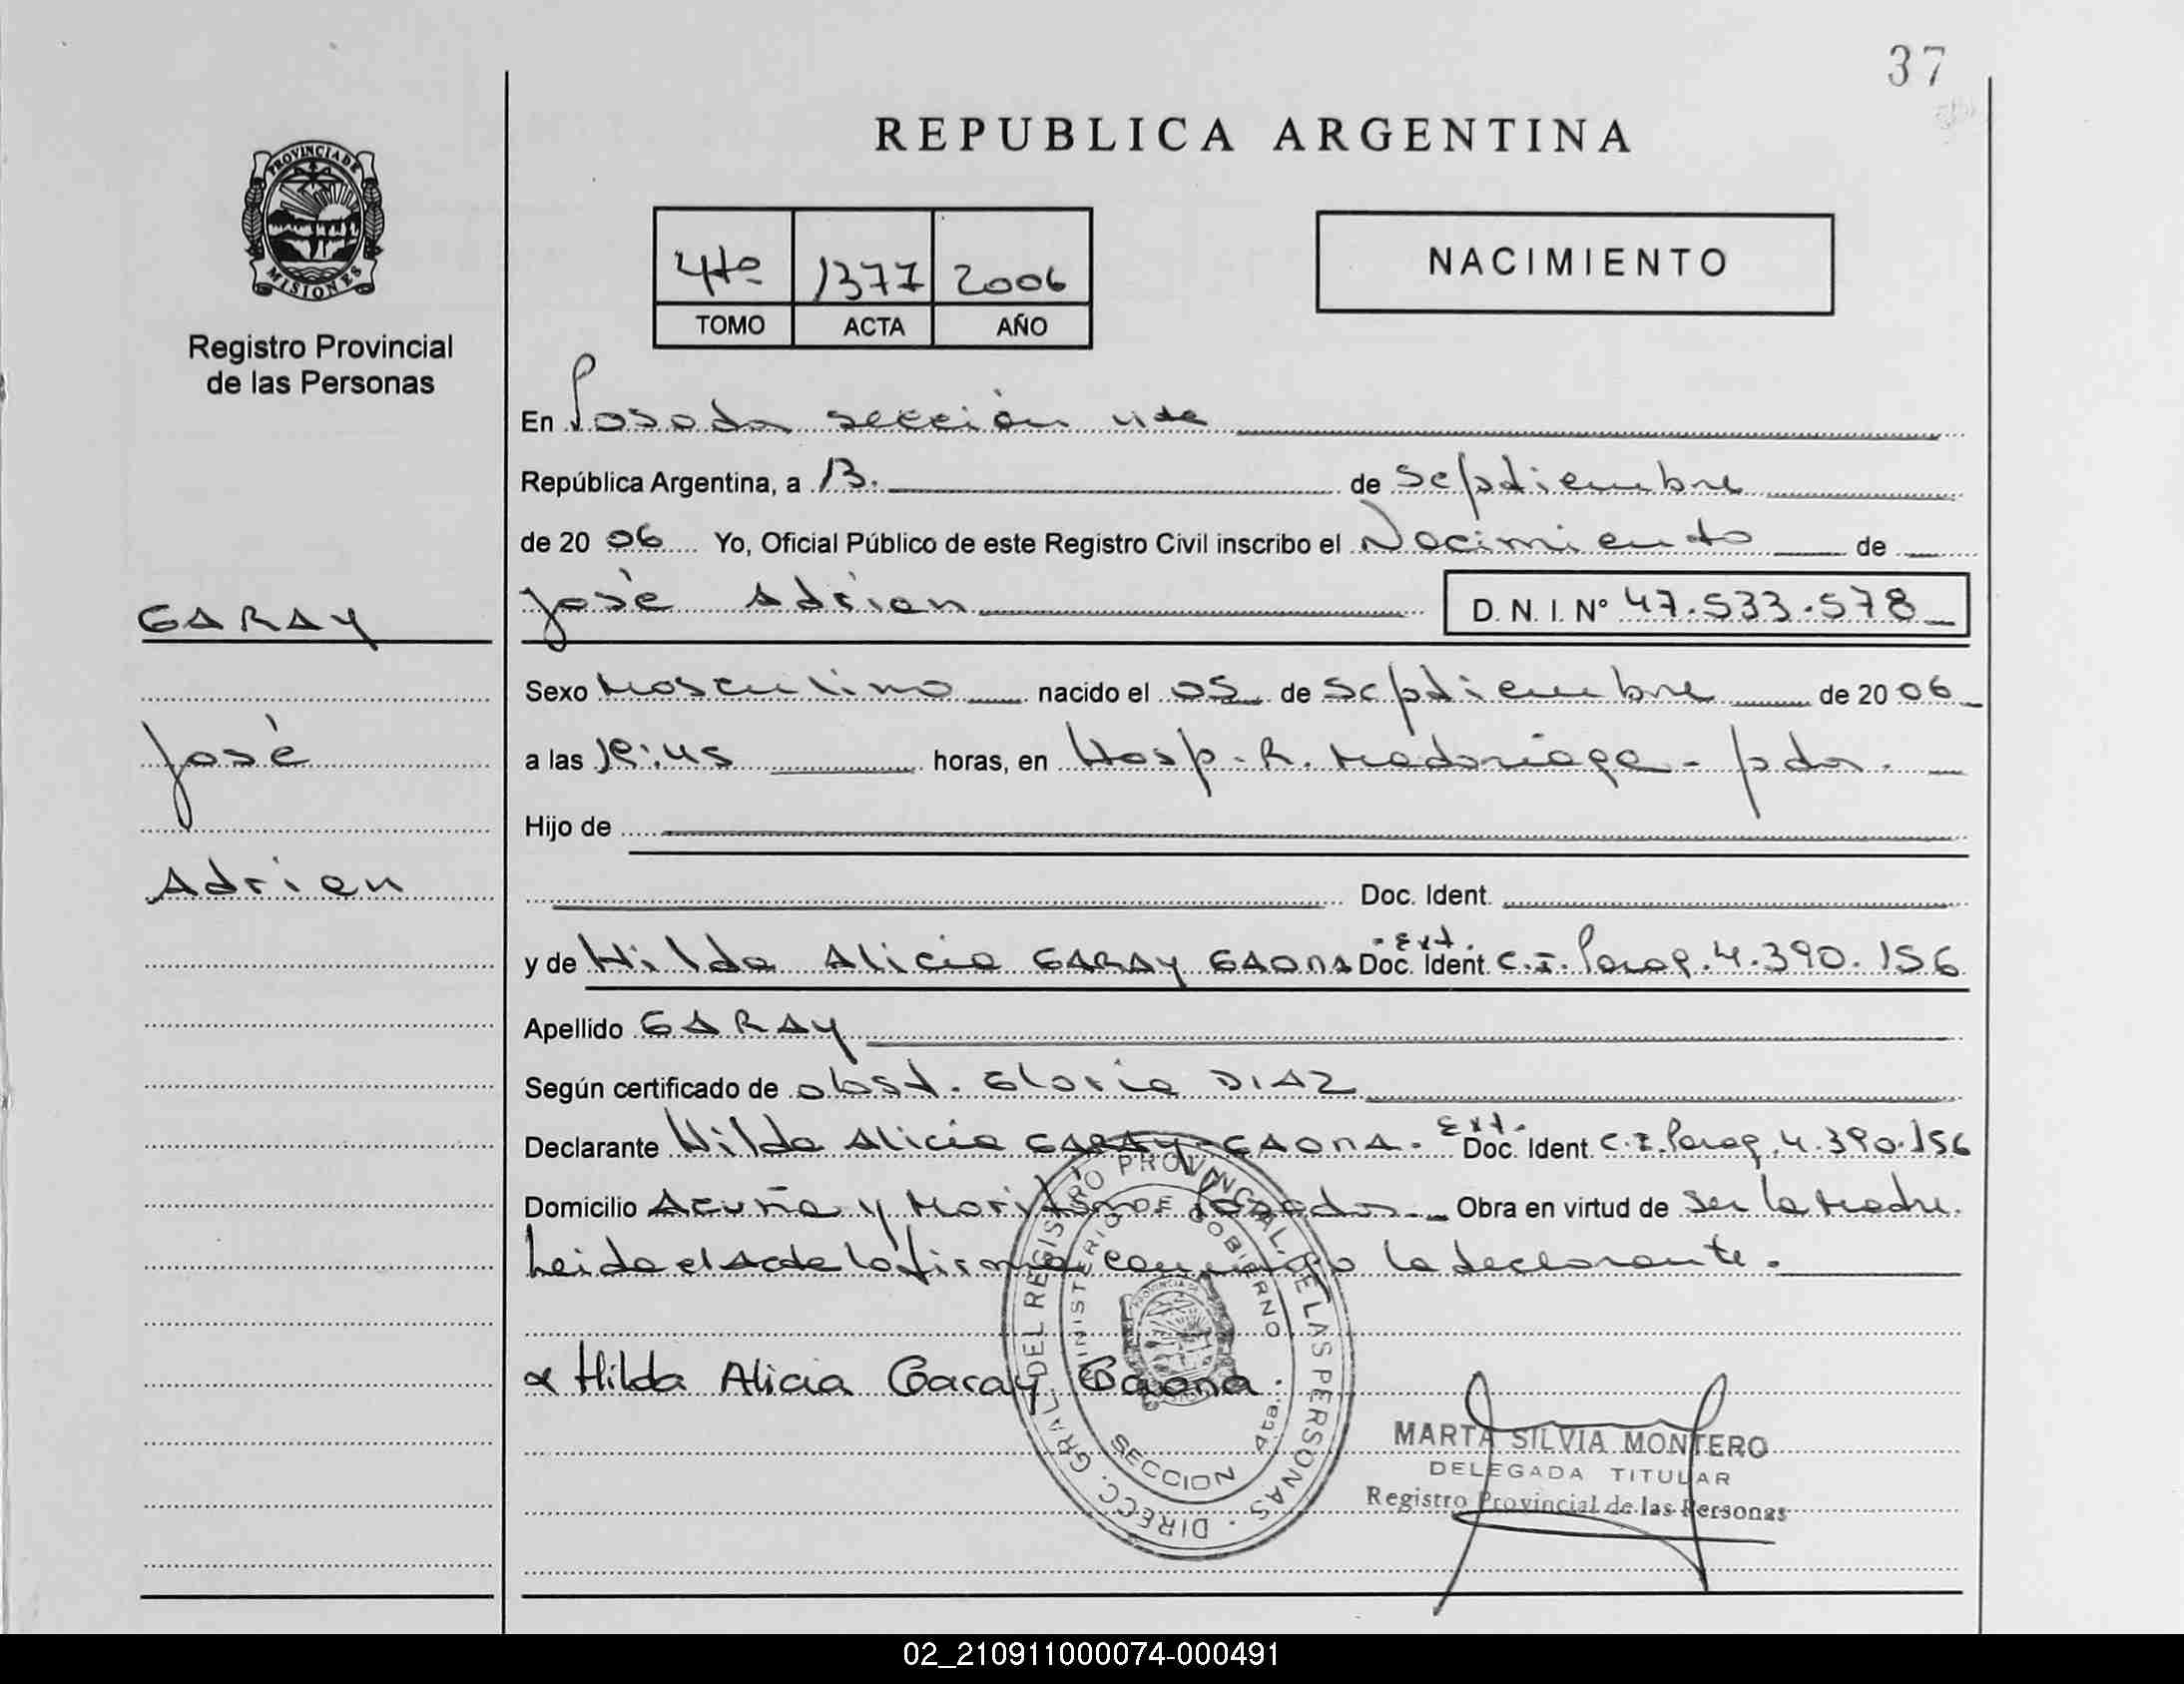 37
REPUBLICA ARGENTINA
PROVINCIA DE
MISIONES
Registro Provincial
de las Personas
4to 1377 2006
TOMO ACTA AÑO
NACIMIENTO
En Posadas sección 4ta
República Argentina, a 13. de Septiembre
de 20 06 Yo, Oficial Público de este Registro Civil inscribo el Nacimiento de
José Adrian D. N. I. N° 47.533.578
GARAY
José
Adrian
Sexo Masculino nacido el 05 de Septiembre de 20 06
a las horas, en Hosp. R. Madariaga - pdas.
Hijo de
Doc. Ident.
y de Hilda Alicia GARAY GAONA Doc. Ext. Ident. C.I. Parag. 4.390.156
Apellido GARAY
Según certificado de obst. Gloria DIAZ
Declarante Hilda Alicia GARAY GAONA. Ext. Doc. Ident. C.I. Parag. 4.390.156
Domicilio Acuña y Posadas. Obra en virtud de ser la Madre.
Leida el Acta la firma conmigo la declarante.
Hilda Alicia Garay Gaona.
DIRECC. GRAL. DEL REGISTRO PROVINCIAL DE LAS PERSONAS
MINISTERIO DE GOBIERNO
SECCION 4ta.
MARTA SILVIA MONTERO
DELEGADA TITULAR
Registro Provincial de las Personas
02_210911000074-000491